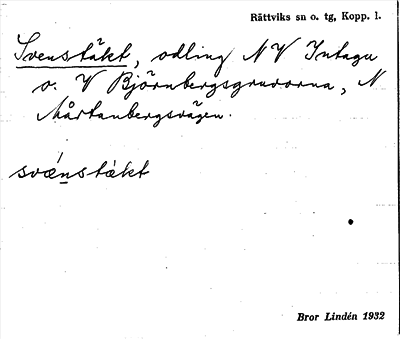 Rättviks sn o. tg, Kopp. l.
Svenstäkt, odling NV Intagu
o. V Björnbergsgruvorna, N
Mårtanbergsvägen.
svǽnstäkt
Bror Lindén 1932